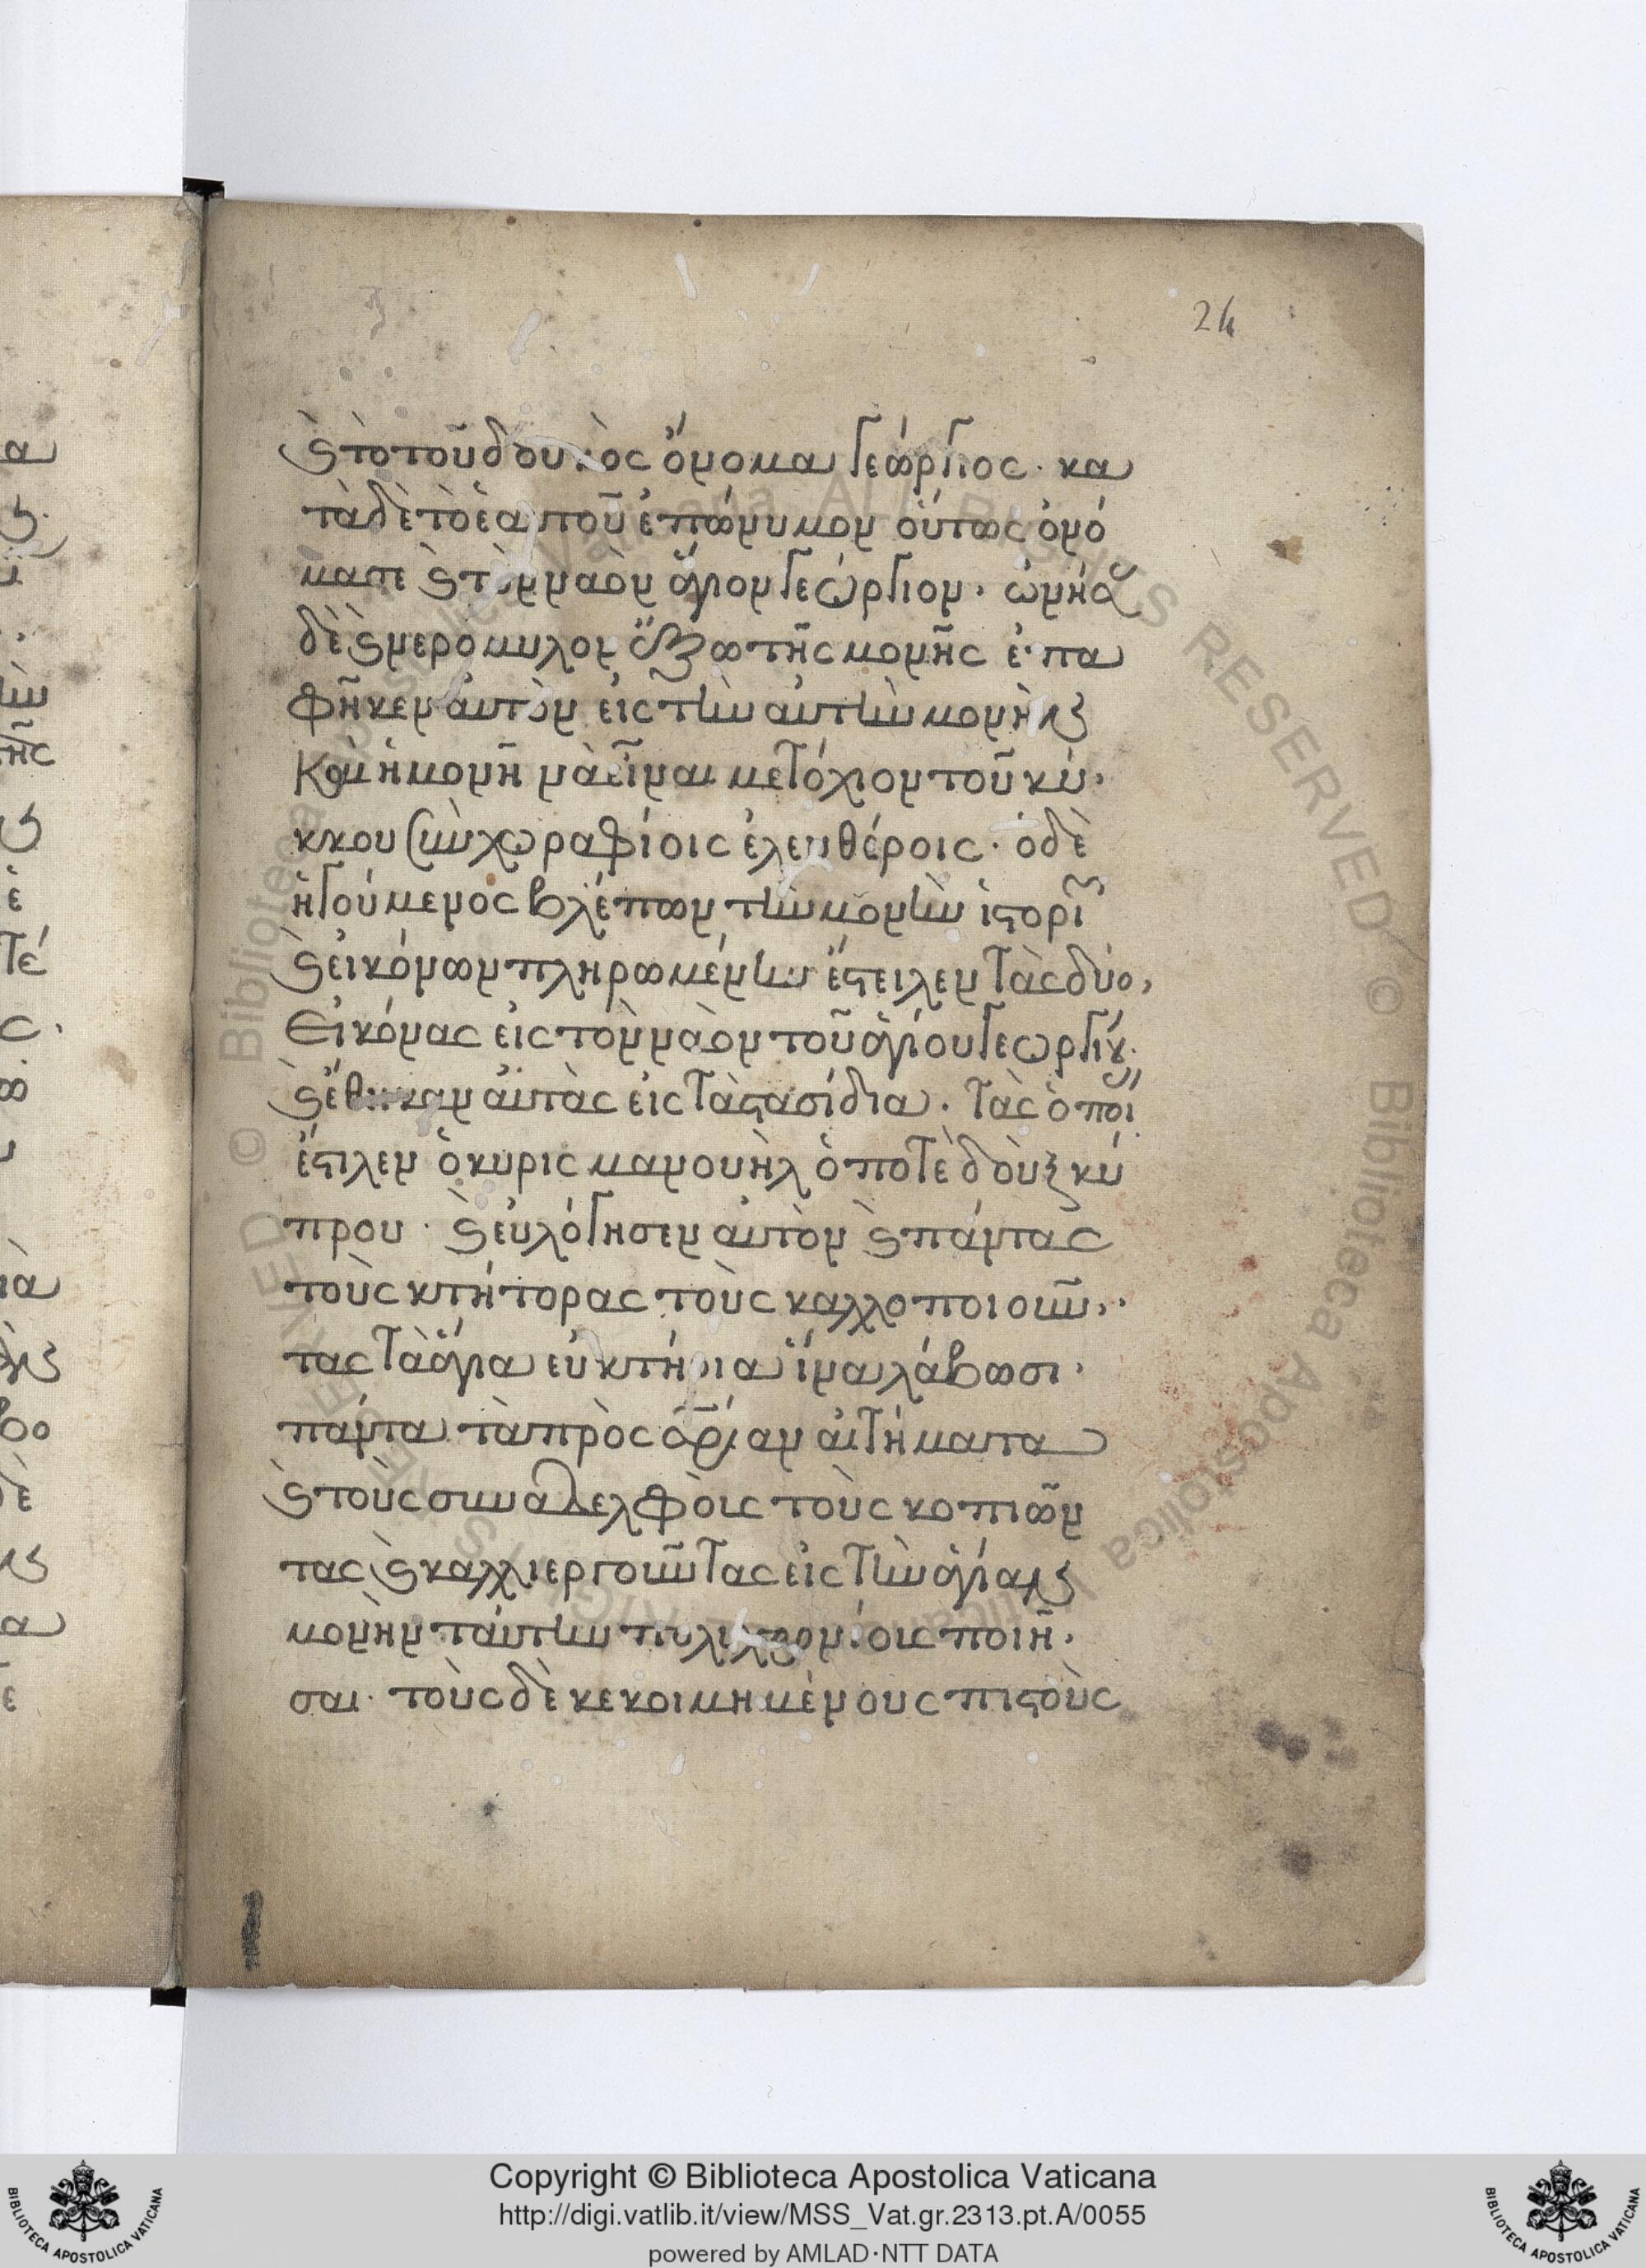 24
ϗ τὸ τοῦ δουκὸς ὄνομα γεώργιος· κα
τὰ δὲ τὸ ἑαυτοῦ ἐπώνυμον οὕτως ὀνό
μασε ϗ τὸν ναὸν ἅγιον γεώργιον·
δὲ ϗ νερόμυλον ἔξω τῆς μονῆς ἐπα
φῆκεν αὐτὸν εἰς τὴν αὐτὴν μονὴν
Καὶ ἡ μονῆ νὰ εἶναι μετόχιον τοῦ κύ·
κκου σὺν χωραφίοις ἐλευθέροις· ὁ δὲ
ἡγούμενος βλέπων τὴν μονὴν
ϗ εἰκόνων πληρωμένην ἔστειλεν τὰς δύο,
Εἰκόνας εἰς τὸν ναὸν τοῦ ἁγίου γεωργίου·
ϗ ἔθηκαν αὐτὰς εἰς τὰ στασίδια· τὰς ὁποί
ἔστιλεν ὁ κύρις μανουὴλ ὁ ποτὲ δοὺξ κύ
πρου· ϗ εὐλόγησεν αὐτὸν ϗ πάντας
τοὺς κτήτορας τοὺς καλλοποιοῦν,·
τας τὰ ἅγια εὐκτήρια ἵνα λάβωσι·
πάντα τὰ πρὸς σωτηρίαν αἰτήματα
ϗ τοὺς συναδελφοὺς τοὺς κοπιῶν
τας ϗ καλλιεργοῦντας εἰς τὴν ἁγίαν
μονὴν ταύτην ποιῆ·
σαι· τοὺς δὲ κεκοιμημένους πιστοὺς
Copyright © Biblioteca Apostolica Vaticana
http://digi.vatlib.it/view/MSS_Vat.gr.2313.pt.A/0055
powered by AMLAD·NTT DATA
BIBLIOTECA APOSTOLICA VATICANA
BIBLIOTECA APOSTOLICA VATICANA